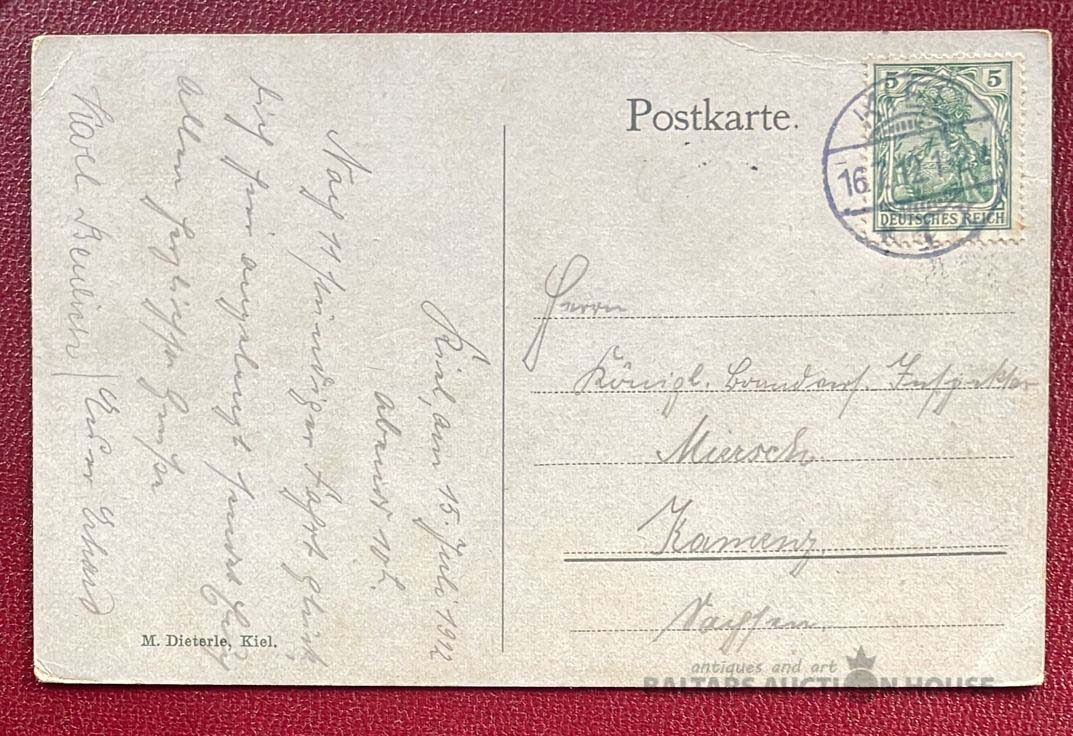 Postkarte.
5 5
DEUTSCHES REICH
16.7.12.1
Kiel, am 15. Juli 1912
abends 10 h.
Nach 11 stündiger Fahrt glück
lich hier angelangt sendet
Allen herzlichste Grüße
Karl
Herrn
Königl. Brandvers. Inspektor
Miersch
Kamenz
Sachsen.
M. Dieterle, Kiel.
antiques and art
BALTARS AUCTION HOUSE